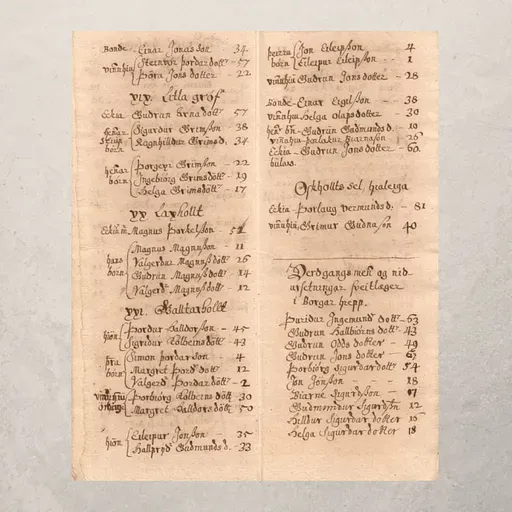 Bonde Einar Jonas son 34
vinnuhiu Steinvör þordardott - 57
Þóra Jons dotter - 22
xix. Litla gröf
Eckia - Gudrun Arnadott - 57
hennar stiup born Sigurdur Grimsson 38
Ragnhilldur Grimsd. 34
hennar born Þorgeyr Grimsson - 22
Ingebiörg Grimsdott - 19
Helga Grimsdött - 17
xx Laxhollt
Eckiu m. Magnus Þorkelsson - 51
hans born Magnus Magnusson - 11
Valgerdur Magnusdött - 26
Gudrun Magnusdött 14
Valgerd Magnusdött - 12
xxi. Galltarhollt
hión Þordur Halldorsson - 45
Sigridur Colbeinsdött - 43
þra born Simon þordarson 4
Margret Þord dott 12
Valgerd Þordar dött - 2
vinnuhiu Þorbiörg Kolbeinsdött - 30
Margret Halldorsdött 50
hión Eileipur Jonsson 35
Hallpryd Gudmunds d. - 33
þeirra born Jon Eileipsson 4
Eileipur Eileipsson - 1
vinnuhiu Gudrun Jons dotter - 28
Bonde - Einar Eigelsson - 38
vinnuhiu Helga olaps dotter - 30
Gudrun Gudmunds d. 19
vinnuhiu þorlakur Biarnason 26
Eckia - Gudrun Jons dotter - 60
bulaus
Ockhollts sel, hialeiga
Eckia Þorlaug vermunds d. - 81
vinnuhiu Grimur Gudnason 40
Verdgangs menn og nid-
ursetningar sveitlæger
i Borgar hrepp.
Þuridar Ingemund dott - 63
Gudrun Hallbiörns dott - 43
Gudrun Odds dotter - 49
Gudrun Jons dotter
Þorbiörg Sigurdar dott - 54
Jon Jónsson - 18
Biarne Sigurdsson - 17
Gudmundur Sigurds 12
Hilldur Sigurdar dotter
Helga Sigurdar dotter 18